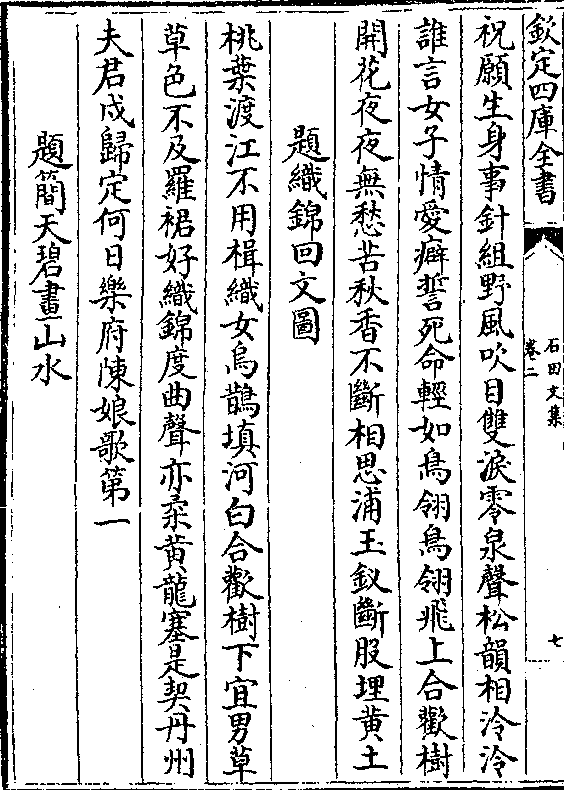 欽定四庫全書
石田文集
卷二
七
祝願生身事針組野風吹目雙淚零泉聲松韻相泠泠
誰言女子情愛癖誓死命輕如鳥翎鳥翎飛上合歡樹
開花夜夜無愁苦秋香不斷相思浦玉釵斷股埋黃土
題織錦回文圖
桃葉渡江不用楫織女烏鵲填河白合歡樹下宜男草
草色不及羅裙好織錦度曲聲亦柔黃龍塞是契丹州
夫君戍歸定何日樂府陳娘歌第一
題簡天碧畫山水